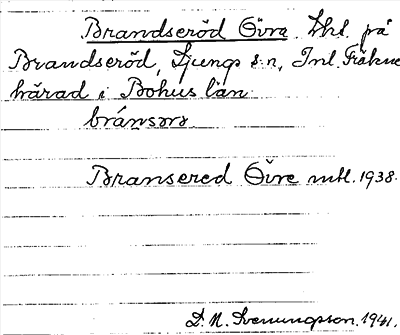 Brandseröd Övre. Lht. på
Brandseröd, Ljungs sn, Inl. Fräkne
härad i Bohus län.
bránsərə
Bransered Övre mtl. 1938.
D. N. Svenungsson. 1941.